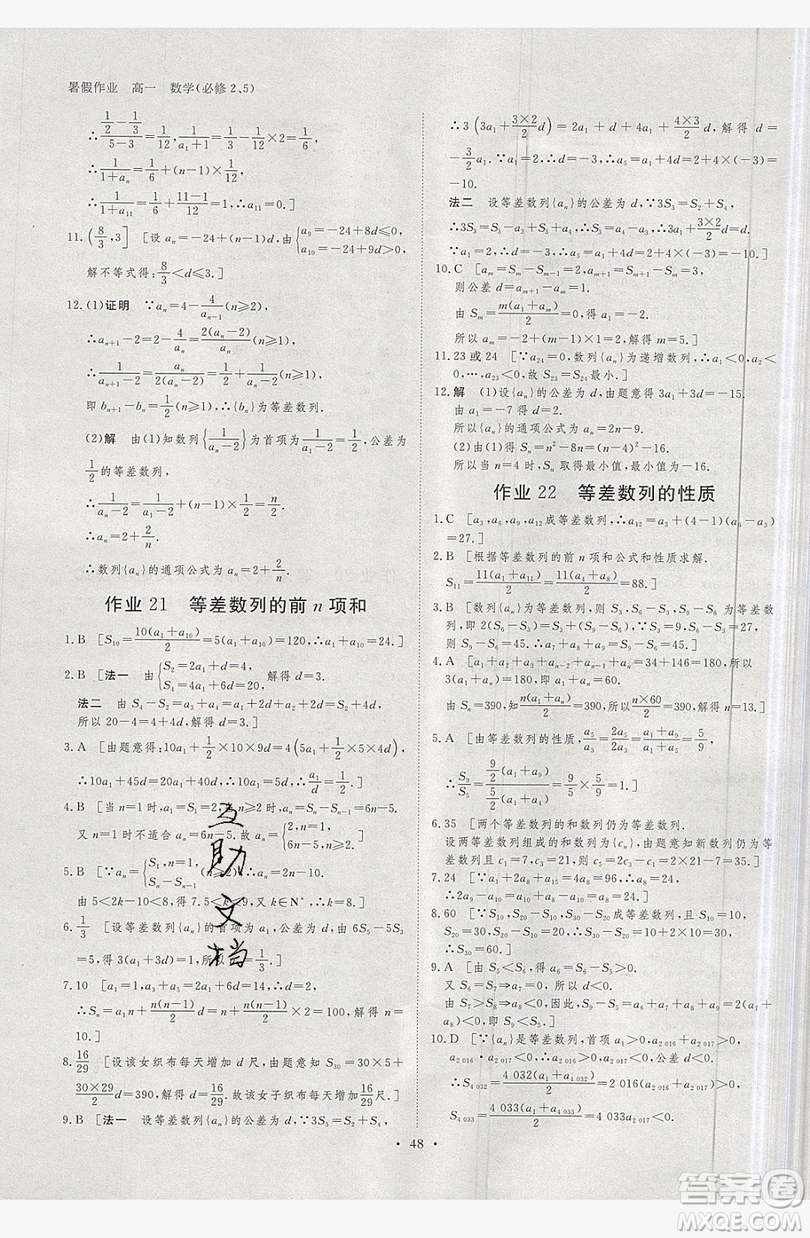 暑假作业 高一 数学(必修2、5)
∴(1/2-1/3)/(5-3)=1/12,∴1/(1+aₙ)=1/3+(n-1)×1/12
∴1/(1+aₙ)=1/6+(n-1)×1/12,
∴1/(1+a₁₁)=1/6+(11-1)/12=1.]
11.(8/3,3] [设aₙ=-24+(n-1)d,由{a₉=-24+8d≤0 a₁₀=-24+9d>0,
解不等式得:8/3<d≤3.]
12.(1)证明 ∵aₙ=4-4/aₙ₋₁,
∴aₙ₊₁-2=2-4/aₙ=2(aₙ-2)/aₙ,
即bₙ₊₁-bₙ=1/2,∴{bₙ}为等差数列.
(2)解 由(1)知数列{1/(aₙ-2)}的首项为1/(a₁-2)=1/2,公差为
1/2的等差数列.
∴1/(aₙ-2)=1/2+(n-1)×1/2=n/2,∴aₙ=2+2/n.
∴数列{aₙ}的通项公式为aₙ=2+2/n.
作业21 等差数列的前n项和
1.B [S₁₀=10(a₁+a₁₀)/2=5(a₁+a₁₀)=120,∴a₁+a₁₀=24.]
2.B [法一 由{S₂=2a₁+d=4, S₄=4a₁+6d=20, 解得d=3.
法二 由S₄-S₂=a₃+a₄=a₁+2d+a₂+2d=S₂+4d,
所以20-4=4+4d,解得d=3.]
3.A [由题意得:10a₁+1/2×10×9d=4(5a₁+1/2×5×4d),
∴10a₁+45d=20a₁+40d,∴10a₁=5d,∴a₁/d=1/2.]
4.B [当n=1时,a₁=S₁=2,当n≥2时,aₙ=Sₙ-Sₙ₋₁=6n-5.
又n=1时不适合aₙ=6n-5.故aₙ={2,n=1, 6n-5,n≥2.]
5.B [∵aₙ={S₁,n=1, Sₙ-Sₙ₋₁,n≥2,∴aₙ=2n-10.
由5<2k-10<8,得7.5<k<9,又k∈N*,∴k=8.]
6.1/3 [设等差数列{aₙ}的首项为a₁,公差为d,由6S₅-5S₃
=5,得3(a₁+3d)=1,所以a₄=1/3.]
7.10 [a₁=1,a₃+a₅=2a₁+6d=14,∴d=2,
∴Sₙ=na₁+n(n-1)/2 d=n+n(n-1)/2×2=100.解得n=
10.]
8.16/29 [设该女织布每天增加d尺,由题意知S₃₀=30×5+
(30×29/2)d=390,解得d=16/29.故该女子织布每天增加16/29尺.]
9.B [法一 设等差数列{aₙ}的公差为d,∵3S₃=S₂+S₄,
∴3(3a₁+3×2/2 d)=2a₁+d+4a₁+4×3/2 d,解得d=
-3/2a₁,∵a₁=2,∴d=-3,∴a₅=a₁+4d=2+4×(-3)=
-10.
法二 设等差数列{aₙ}的公差为d,∵3S₃=S₂+S₄,
∴3S₃=S₃-a₃+S₃+a₄,∴S₃=a₄-a₃,∴3a₁+3×2/2 d=d,
∵a₁=2,∴d=-3,∴a₅=a₁+4d=2+4×(-3)=-10.]
10.C [aₘ=Sₘ-Sₘ₋₁=2,aₘ₊₁=Sₘ₊₁-Sₘ=3,
则公差d=aₘ₊₁-aₘ=1.
由Sₘ=m(a₁+aₘ)/2=0,得a₁=-2.
所以aₘ=-2+(m-1)×1=2,解得m=5.]
11.23或24 [∵a₂₄=0,数列{aₙ}为递增数列,∴a₁<0,
…,a₂₃<0.故S₂₃=S₂₄最小.]
12.解 (1)设{aₙ}的公差为d,由题意得3a₁+3d=-15.
由a₁=-7得d=2.
所以{aₙ}的通项公式为aₙ=2n-9.
(2)由(1)得Sₙ=n²-8n=(n-4)²-16.
所以当n=4时,Sₙ取得最小值,最小值为-16.
作业22 等差数列的性质
1.C [a₃,a₆,a₉,a₁₂成等差数列,∴a₁₂=15+(15-9)×2
=27.]
2.B [根据等差数列的前n项和公式和性质求解.
S₁₁=11(a₁+a₁₁)/2=11(a₄+a₈)/2=88.]
3.B [数列{aₙ}为等差数列,则S₃,S₆-S₃,S₉-S₆为等差
数列,即2(S₆-S₃)=S₃+(S₉-S₆),∵S₃=9,S₆-S₃=
27,则S₉-S₆=45.∴a₇+a₈+a₉=S₉-S₆=45.]
4.A [∵a₁+a₂+a₃+aₙ₋₂+aₙ₋₁+aₙ=34+146=180,所以
3(a₁+aₙ)=180,即a₁+aₙ=60.
由Sₙ=390,知n(a₁+aₙ)/2=390,所以n×60/2=390,解得n=13.]
5.A [由等差数列的性质,a₅/a₃=2a₅/2a₃=(a₁+a₉)/(a₁+a₅)=5/9
∴S₉/S₅=(9/2(a₁+a₉))/(5/2(a₁+a₅))=9/5×5/9=1.]
6.35 [两个等差数列的和数列仍为等差数列.
设两等差数列组成的和数列为{cₙ},由题意知新数列仍为等
差数列且c₁=7,c₃=21,则c₅=2c₃-c₁=2×21-7=35.]
7.24 [∵a₁+3a₈+a₁₅=5a₈=120,∴a₈=24,
∴2a₉-a₁₀=a₁₀-a₈-a₁₀=a₈=24.]
8.60 [∵S₁₀,S₂₀-S₁₀,S₃₀-S₂₀成等差数列,∴2(S₂₀-S₁₀)
=S₁₀+S₃₀-S₂₀,∴40=10+S₃₀-30,
∴S₃₀=60.]
9.A [由S₅<S₆,得a₆=S₆-S₅>0.
又S₆=S₇⇒a₇=0,所以d<0.
由S₇>S₈⇒a₈<0,因此,S₉-S₅=a₆+a₇+a₈+a₉=
2(a₇+a₈)<0即S₉<S₅.]
10.D [∵{aₙ}是等差数列,首项a₁>0,a₂ ₀₁₆+a₂ ₀₁₇>0,
a₂ ₀₁₆·a₂ ₀₁₇<0,∴a₂ ₀₁₆>0,a₂ ₀₁₇<0,d<0.
∴S₄ ₀₃₂=4 032(a₁+a₄ ₀₃₂)/2=2 016(a₂ ₀₁₆+a₂ ₀₁₇)>0,
S₄ ₀₃₃=4 033(a₁+a₄ ₀₃₃)/2=4 033a₂ ₀₁₇<0.]
互助文档
·48·
答案圈
MXQE.COM